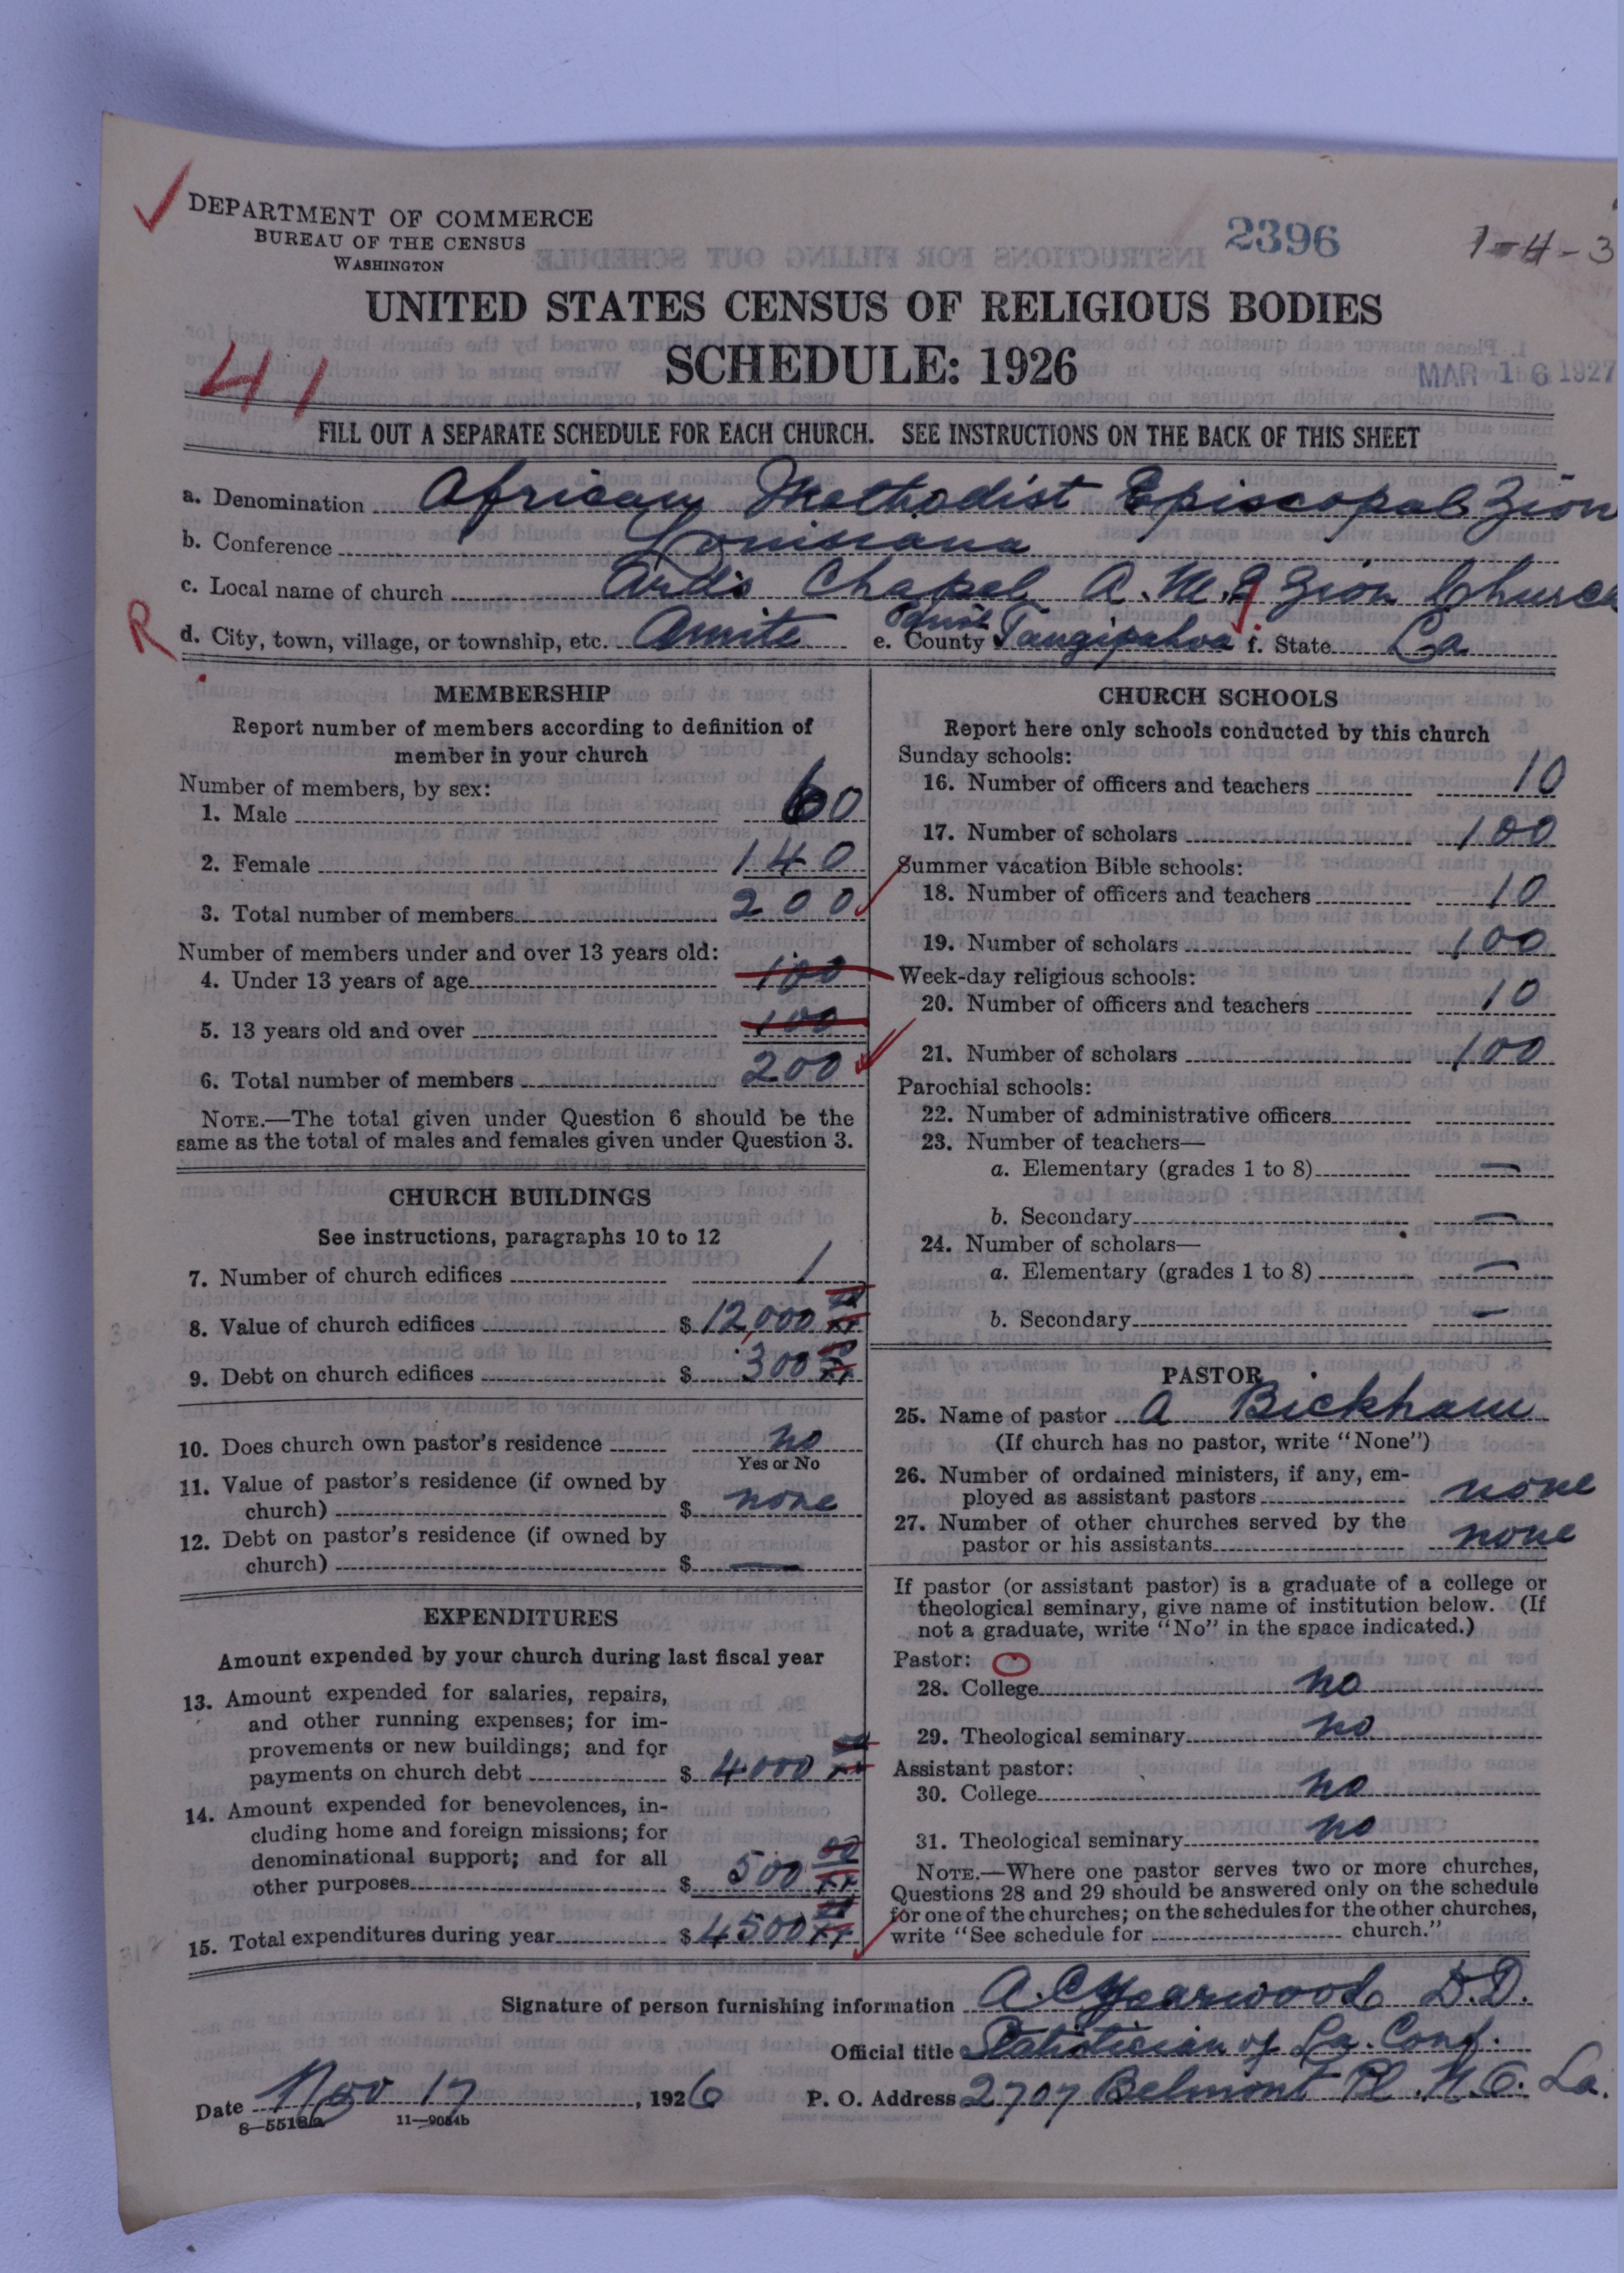 DEPARTMENT OF COMMERCE
BUREAU OF THE CENSUS
WASHINGTON
2396
1-4-3
UNITED STATES CENSUS OF RELIGIOUS BODIES
SCHEDULE: 1926
41
MAR 16 1927
FILL OUT A SEPARATE SCHEDULE FOR EACH CHURCH. SEE INSTRUCTIONS ON THE BACK OF THIS SHEET
a. Denomination African Methodist Episcopal Zion
b. Conference Louisiana
c. Local name of church Ards Chapel A.M.E Zion Church
R
d. City, town, village, or township, etc. Amite e. County Tangipahoa f. State La
MEMBERSHIP
Report number of members according to definition of
member in your church
Number of members, by sex:
1. Male 60
2. Female 140
3. Total number of members 200
Number of members under and over 13 years old:
4. Under 13 years of age 100
5. 13 years old and over 100
6. Total number of members 200
NOTE.—The total given under Question 6 should be the
same as the total of males and females given under Question 3.
CHURCH BUILDINGS
See instructions, paragraphs 10 to 12
7. Number of church edifices 1
8. Value of church edifices $ 12,000 00/xx
9. Debt on church edifices $ 300 00/xx
10. Does church own pastor's residence no
Yes or No
11. Value of pastor's residence (if owned by
church) $ none
12. Debt on pastor's residence (if owned by
church) $ —
EXPENDITURES
Amount expended by your church during last fiscal year
13. Amount expended for salaries, repairs,
and other running expenses; for im-
provements or new buildings; and for
payments on church debt $ 4000 00/xx
14. Amount expended for benevolences, in-
cluding home and foreign missions; for
denominational support; and for all
other purposes $ 500 00/xx
15. Total expenditures during year $ 4500 00/xx
CHURCH SCHOOLS
Report here only schools conducted by this church
Sunday schools:
16. Number of officers and teachers 10
17. Number of scholars 100
Summer vacation Bible schools:
18. Number of officers and teachers 10
19. Number of scholars 100
Week-day religious schools:
20. Number of officers and teachers 10
21. Number of scholars 100
Parochial schools:
22. Number of administrative officers
23. Number of teachers—
a. Elementary (grades 1 to 8) —
b. Secondary —
24. Number of scholars—
a. Elementary (grades 1 to 8) —
b. Secondary —
PASTOR
25. Name of pastor A Bickham
(If church has no pastor, write "None")
26. Number of ordained ministers, if any, em-
ployed as assistant pastors none
27. Number of other churches served by the
pastor or his assistants none
If pastor (or assistant pastor) is a graduate of a college or
theological seminary, give name of institution below. (If
not a graduate, write "No" in the space indicated.)
Pastor:
28. College no
29. Theological seminary no
Assistant pastor:
30. College no
31. Theological seminary no
NOTE.—Where one pastor serves two or more churches,
Questions 28 and 29 should be answered only on the schedule
for one of the churches; on the schedules for the other churches,
write "See schedule for church."
Signature of person furnishing information A. C. Yearwood D.D.
Official title Statistician of La. Conf.
Date Nov 17, 1926 P. O. Address 2707 Belmont Pl. N.O. La.
8—5518a 11—9034b